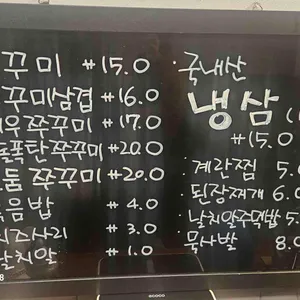 꾸미 ₩15.0
꾸미삼겹 ₩16.0
우쭈꾸미 ₩17.0
폭탄쭈꾸미 ₩20.0
둠쭈꾸미 ₩20.0
음밥 ₩4.0
즈사리 ₩3.0
날치알 ₩1.0
· 국내산
냉삼
₩15.0
· 계란찜 5.
· 된장찌개 6.0
· 날치알주먹밥 5.
· 묵사발 8.0